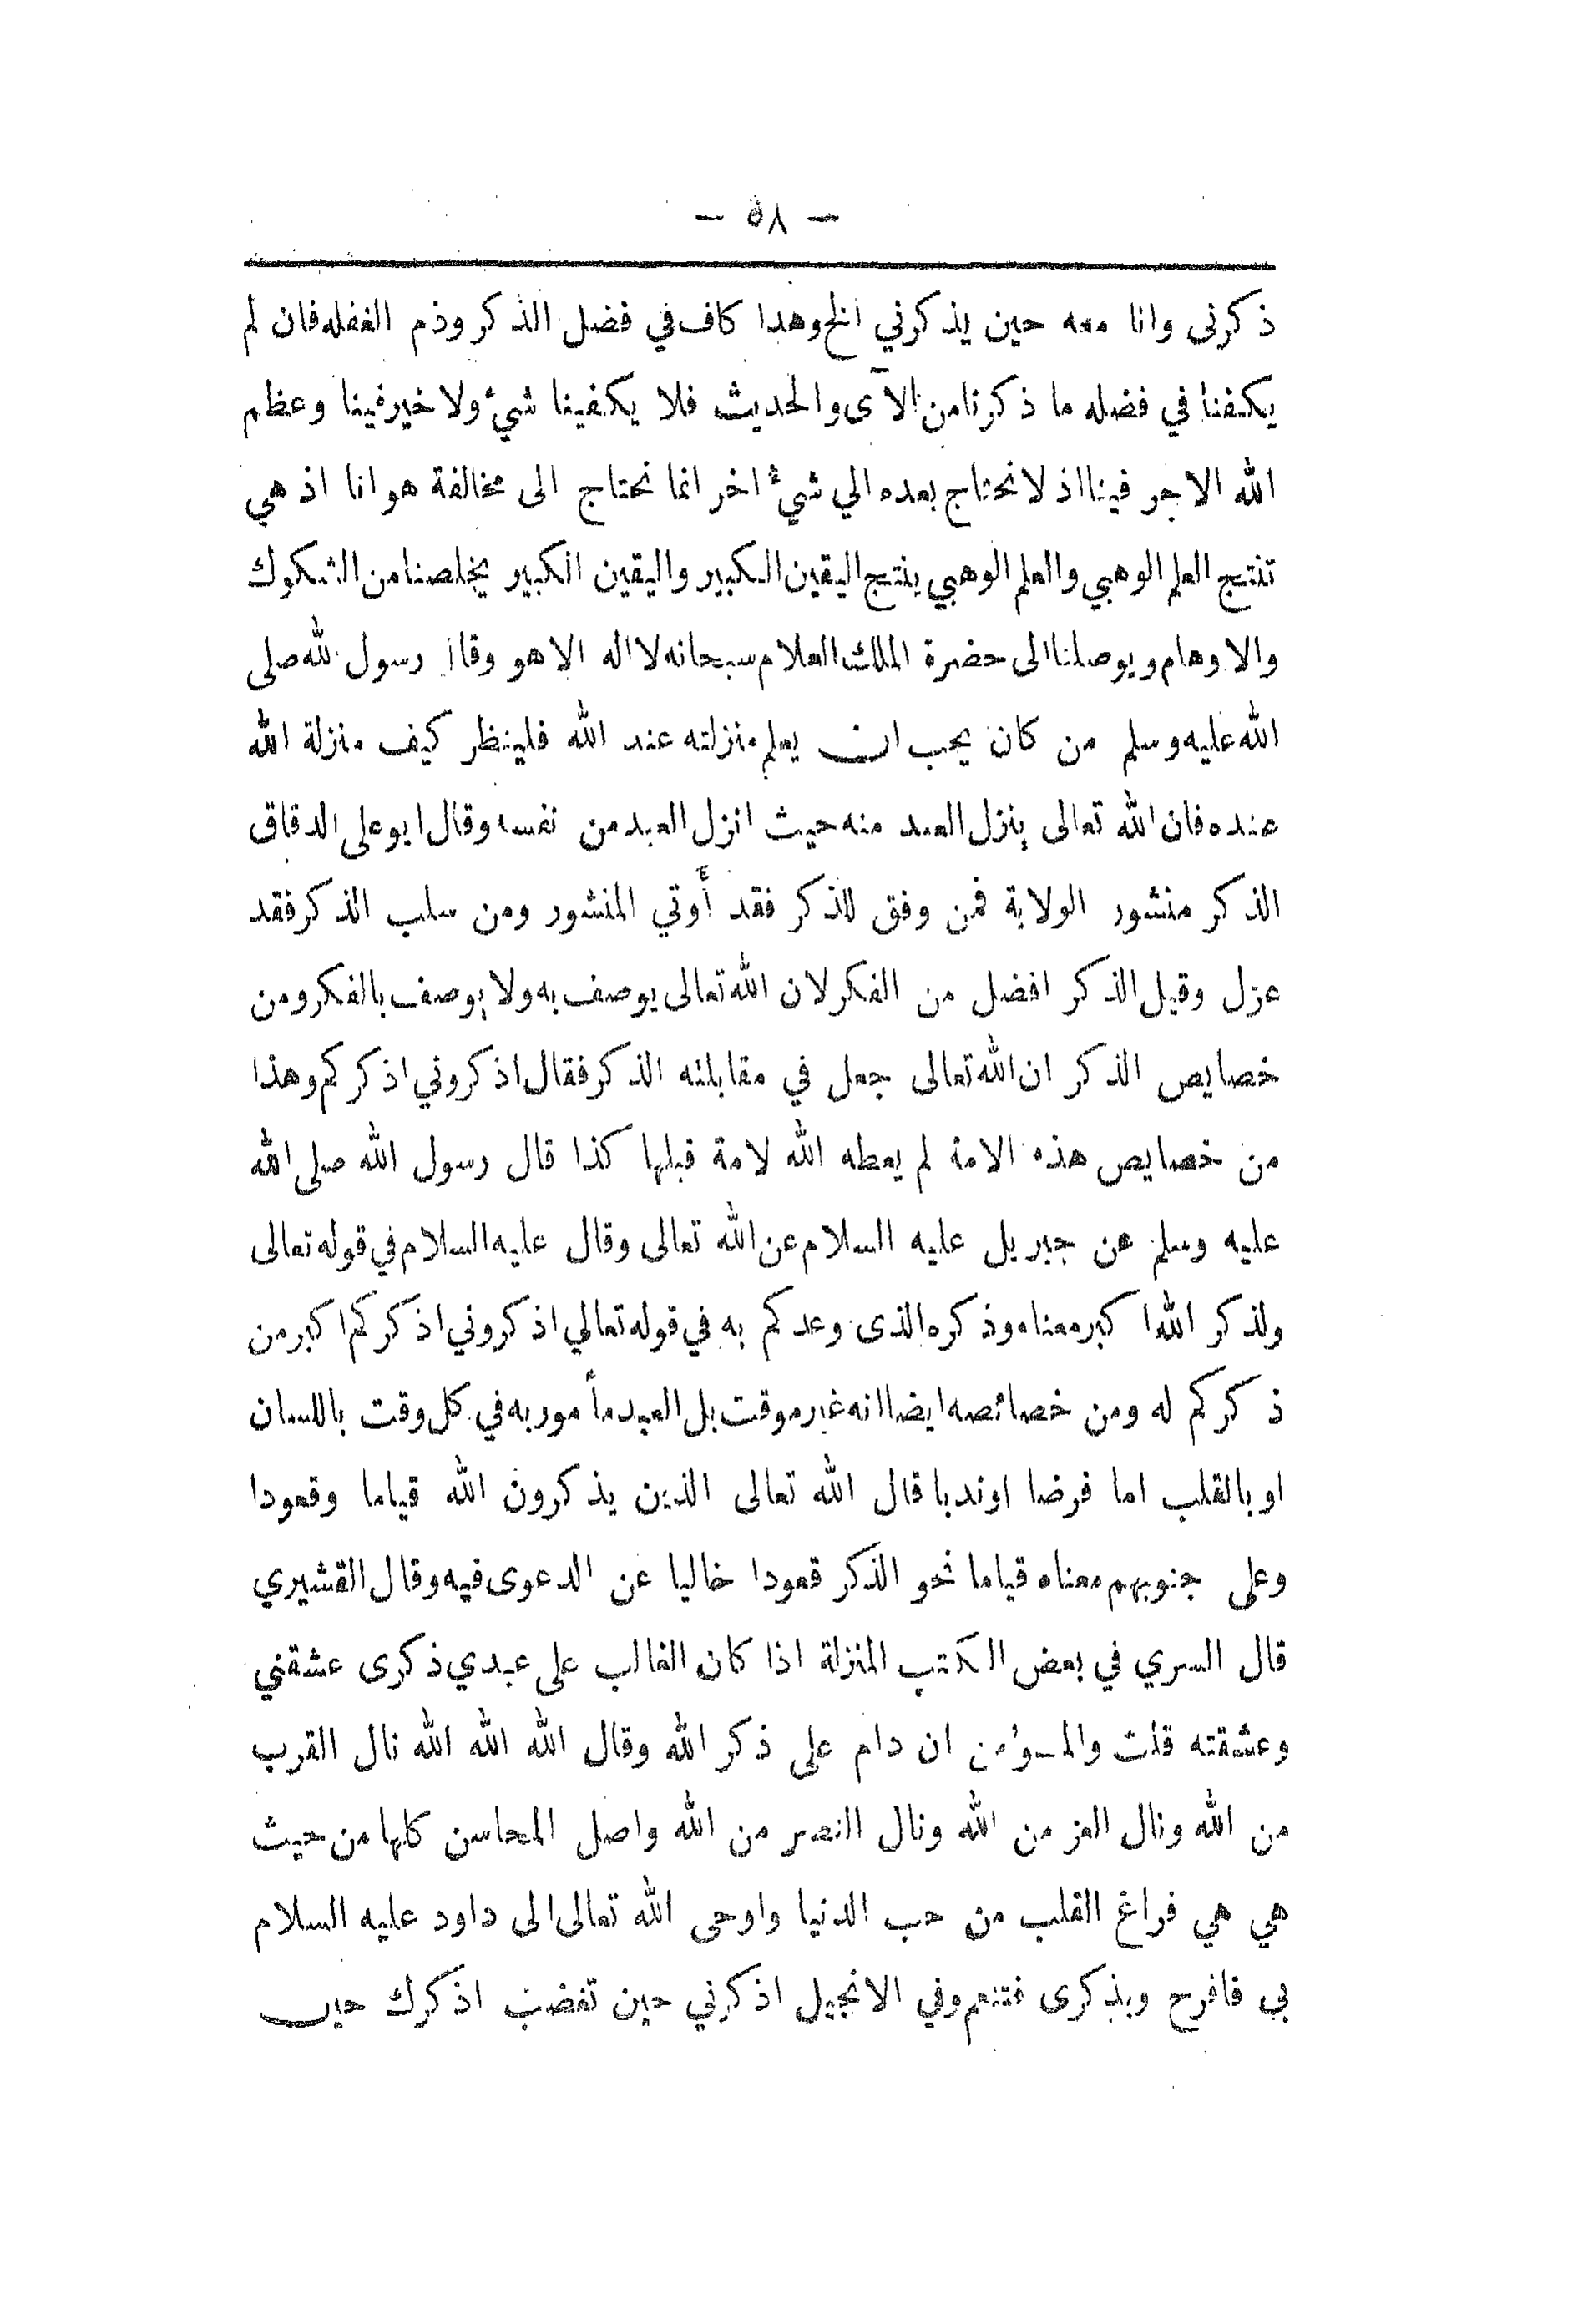 — ٥٨ —
ذكرنى وانا معه حين يذكرني الخ وهدا كاف في فضل الذكر وذم الغفله فان لم
يكفنا في فضله ما ذكرنا من الآى والحديث فلا يكفينا شيء ولا خير فينا وعظم
الله الاجر فينا اذ لا نحتاج بعده الي شيء اخر انما نحتاج الى مخالفة هوانا اذ هي
تنتج العلم الوهبي والعلم الوهبي ينتج اليقين الكبير واليقين الكبير يخلصنا من الشكوك
والاوهام ويوصلنا الى حضرة الملك العلام سبحانه لا اله الا هو وقال رسول الله صلى
الله عليه وسلم من كان يحب ان يعلم منزلته عند الله فلينظر كيف منزلة الله
عنده فان الله تعالى ينزل العبد منه حيث انزل العبد من نفسه وقال ابو على الدقاق
الذكر منشور الولاية فمن وفق للذكر فقد أوتي المنشور ومن سلب الذكر فقد
عزل وقيل الذكر افضل من الفكر لان الله تعالى يوصف به ولا يوصف بالفكر ومن
خصايص الذكر ان الله تعالى جعل في مقابلته الذكر فقال اذكروني اذكركم وهذا
من خصايص هذه الامة لم يعطه الله لامة قبلها كذا قال رسول الله صلى الله
عليه وسلم عن جبريل عليه السلام عن الله تعالى وقال عليه السلام في قوله تعالى
ولذكر الله اكبر معناه وذكره الذى وعدكم به في قوله تعالي اذكروني اذكركم اكبر من
ذكركم له ومن خصائصه ايضا انه غير موقت بل العبد مأمور به في كل وقت باللسان
او بالقلب اما فرضا او ندبا قال الله تعالى الذين يذكرون الله قياما وقعودا
وعلى جنوبهم معناه قياما نحو الذكر قعودا خاليا عن الدعوى فيه وقال القشيري
قال السري في بعض الكتب المنزلة اذا كان الغالب على عبدي ذكرى عشقني
وعشقته قلت والمؤمن ان دام على ذكر الله وقال الله الله الله نال القرب
من الله ونال العز من الله ونال النصر من الله واصل المحاسن كلها من حيث
هي هي فراغ القلب من حب الدنيا واوحى الله تعالى الى داود عليه السلام
بي فافرح وبذكرى فتنعم وفي الانجيل اذكرني حين تغضب اذكرك حين